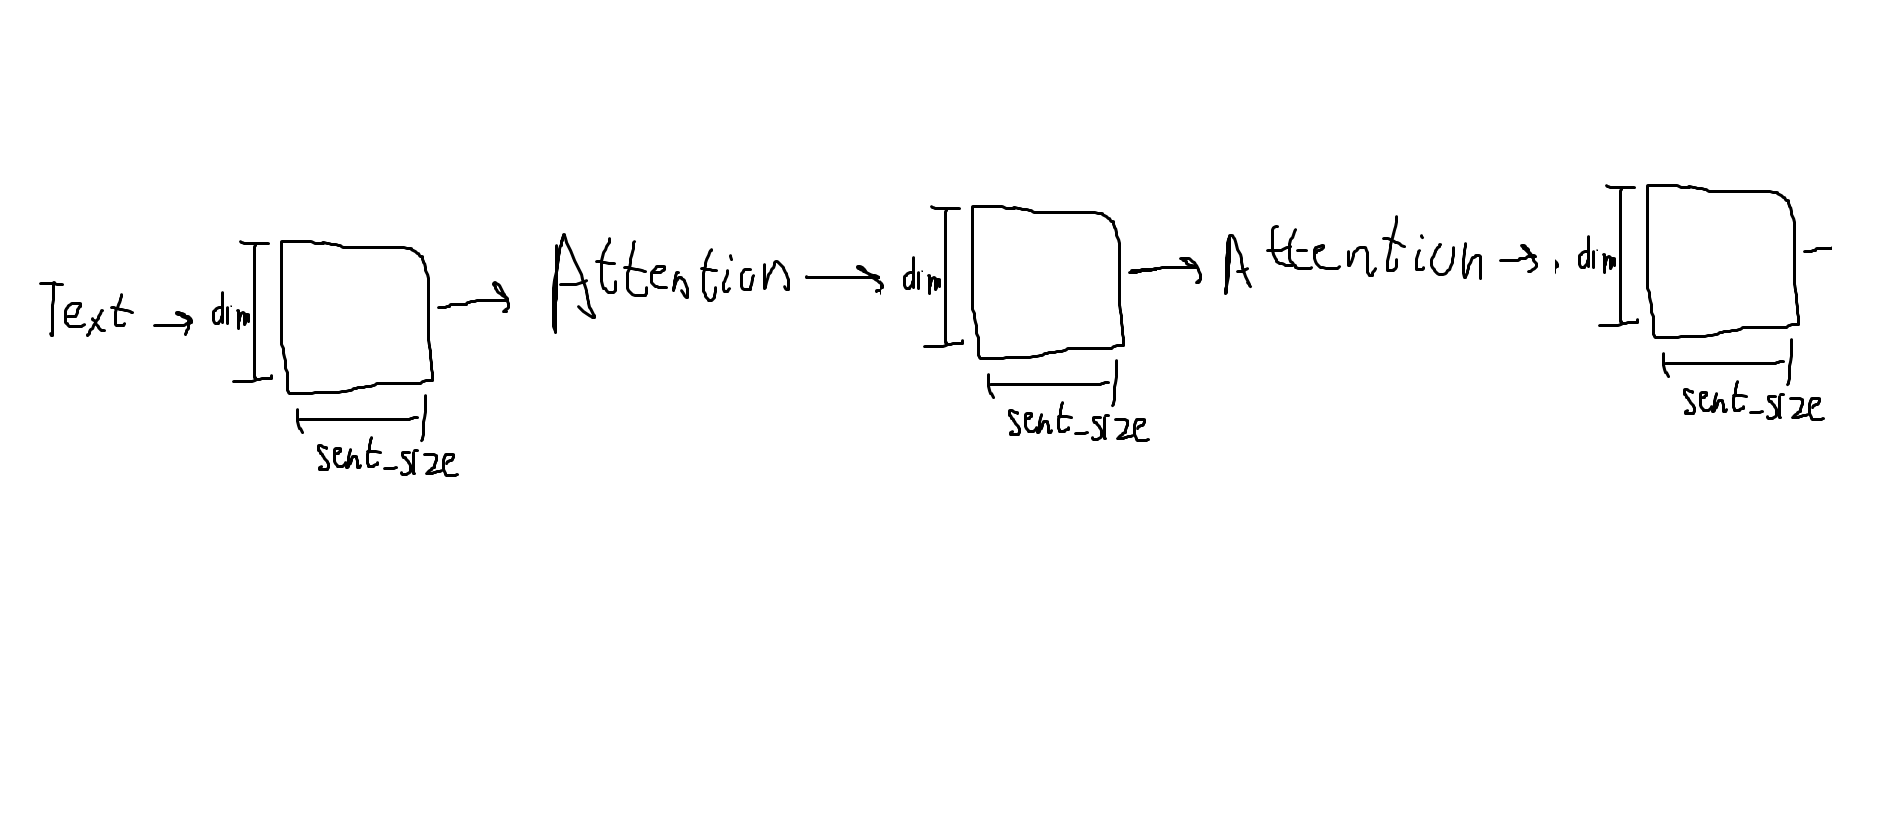 Text → dim
sent_size
→ Attention → dim
sent_size
→ Attention → dim
sent_size